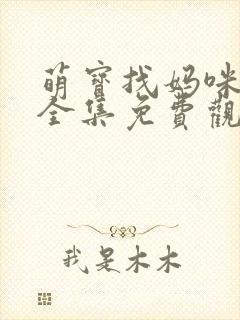 萌寶找媽咪
全集免費觀
我是木木